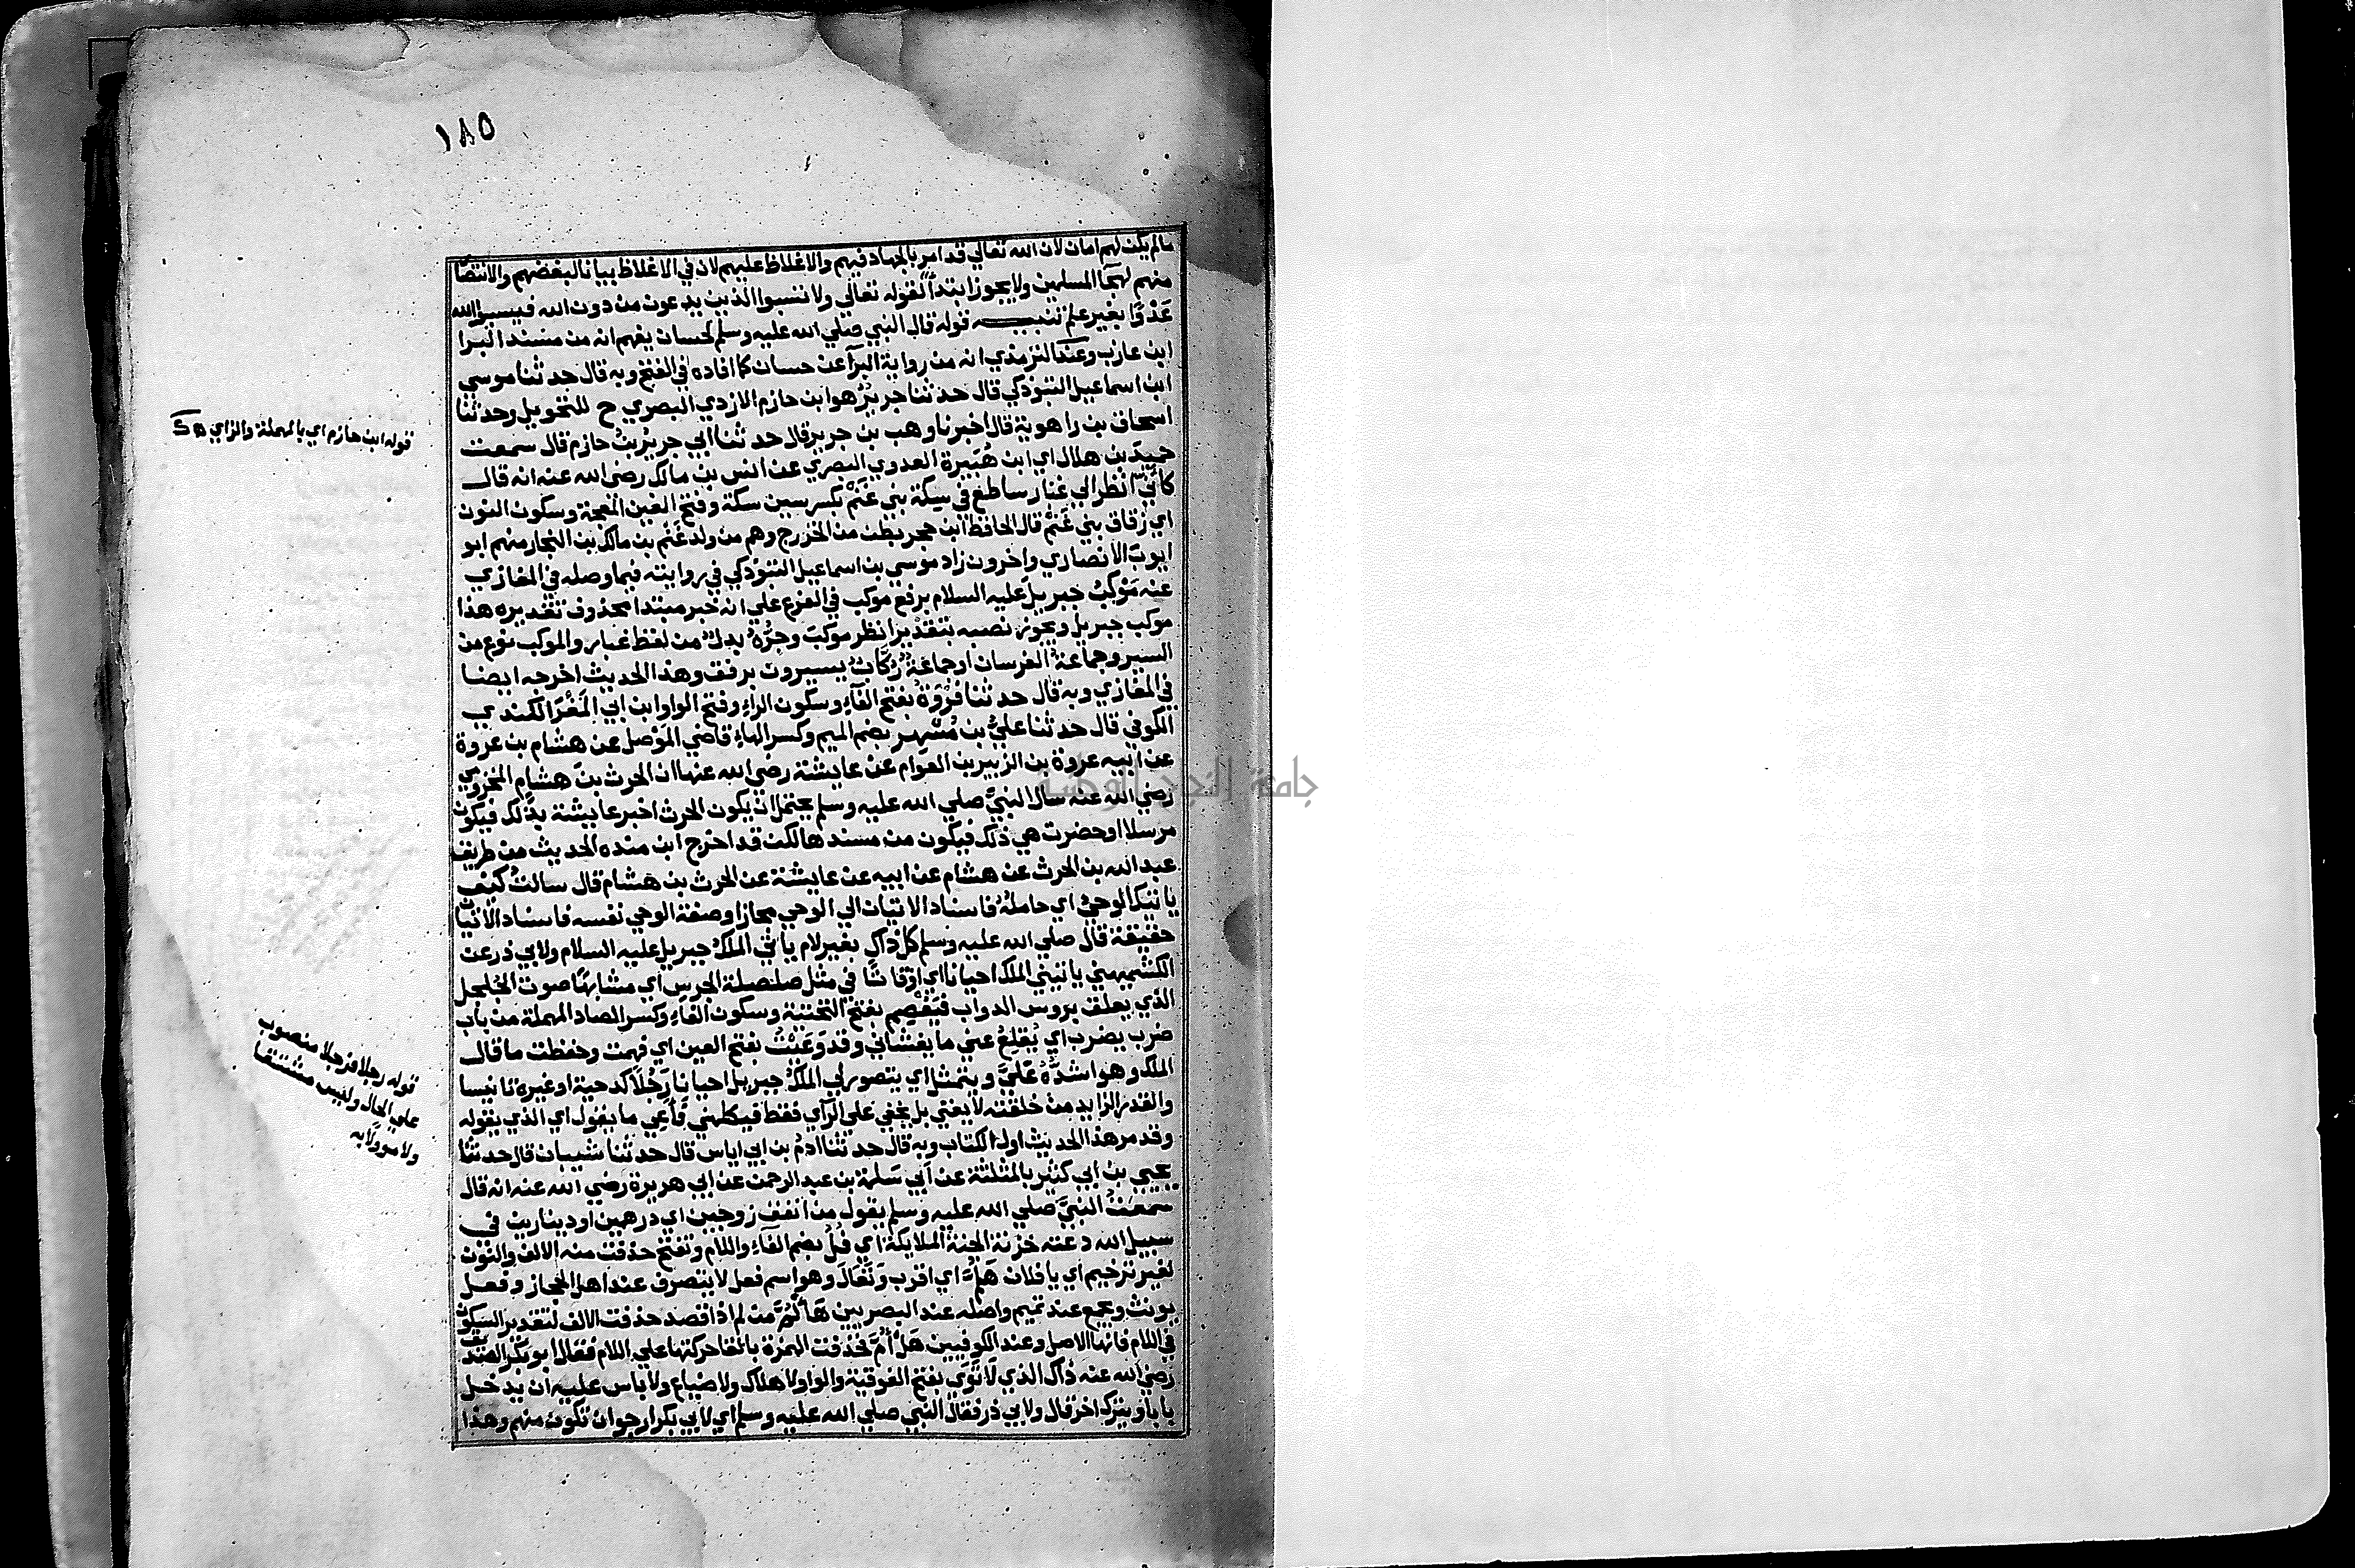 ١٨٥
مالم يكن لهم امان لان الله تعالي قد امر بالجهاد فيهم والاغلاظ عليهم لان في الاغلاظ بيانا لبغضهم والانتصا
منهم لهجا المسلمين ولا يجوز ابتدأ لقوله تعالي ولا تسبوا الذين يدعون من دون الله فيسبوا الله
عَدْوًا بغير علم تنبيـــه قوله قال النبي صلي الله عليه وسلم لحسان يفهم انه من مسند البرا
ابن عازب وعند الترمذي انه من رواية البرآ عن حسان كما افاده في الفتح وبه قال حدثنا موسي
ابن اسماعيل التبوذكي قال حدثنا جريرٌ هو ابن حازم الازدي البصري ح للتحويل وحدثنا
اسحاق بن راهوية قال اخبرنا وهب بن جرير قال حدثنا ابي جريرُ بنُ حازم قال سمعت
حميدَ بن هلال اي ابن هُبَيرة العدوي البصري عن انس بن مالك رضي الله عنه انه قال
كأنّي انظر الي غبار ساطع في سِكة بني غَنْم بكسر سين سكة وفتح الغين المعجة وسكون النون
اي زقاق بني غَنْم قال الحافظ ابن حجر بطن من الخزرج وهم من ولد غَنْم بن مالك بن النجار منهم ابو
ايوب الانصاري واخرون زاد موسي بن اسماعيل التبوذكي في روايته فيما وصله في المغازي
عنه مَوْكِبُ جبريلَ عليه السلام برفع موكب في الفرع علي انه خبر مبتدا محذوف تقديره هذا
موكب جبريل ويجوز نصبه بتقدير انظر موكبَ وجرُّهُ بدلٌ من لفظ غبار والموكب نوع من
السير وجماعةُ الفرسان او جماعةٌ ركّابٌ يسيرون برفق وهذا الحديث اخرجه ايضا
في المغازي وبه قال حدثنا فَرْوَةُ بفتح الفآءِ وسكون الراءِ وفتح الواو ابن ابي المَغْرَا الكندي
الكوفي قال حدثنا عليُّ بن مُسْهِر بضم الميم وكسر الهاءِ قاضي المَوْصل عن هشام بن عروة
عن ابيه عروة بن الزبير بن العوام عن عايشة رضي الله عنها ان الحرث بنَ هشام المخزومي
رضي الله عنه سأل النبيَّ صلي الله عليه وسلم يحتمل ان يكون الحرث اخبر عايشة بذلك فيكون
مرسلا او حضرت هي ذلك فيكون من مسندها لكن قد اخرج ابن منده الحديث من طريق
عبد الله بن الحرث عن هشام عن ابيه عن عايشة عن الحرث بن هشام قال سالتُ كيف
ياتيك الوحيُ اي حاملُهُ فاسناد الاتيان الي الوحي مجاز او صفة الوحي نفسه فاسناد الاتيا
حقيقة قال صلي الله عليه وسلم كلُّ ذاكِ بغير لام ياتي الملكُ جبريل عليه السلام ولابي ذر عن
الكشميهني ياتيني الملك احيانا اي اوقاتًا في مثل صلصلة الجرس اي مشابهًا صوت الجلجل
الذي يعلق بروس الدواب فيَفْصِم بفتح التحتتة وسكون الفآءِ وكسر الصاد المهملة من باب
ضرب يضرب اي يُقلِعُ عني ما يغشاني وقد وَعَيْتُ بفتح العين اي فهمت وحفظت ما قال
الملك وهو اشدُّه عَلَيَّ ويتمثل اي يتصور لي الملكُ جبريل احيانا رَجُلًا كدحية او غيره تانيسا
والقدر الزايد من خلقته لا يفني بل يخفي علي الرآي فقط فيكلمني فأَعِي ما يقول اي الذي يقوله
وقد مر هذا الحديث اول الكتاب وبه قال حدثنا ادمُ بن ابي اياس قال حدثنا شيبان قال حدثنا
يحيي بن ابي كثير بالمثلثة عن ابي سَلَمة بن عبد الرحمن عن ابي هريرة رضي الله عنه انه قال
سمعتُ النبيَّ صلي الله عليه وسلم يقول من انفق زوجين اي درهمين او دينارين في
سبيل الله دعته خزنة الجنة الملايكة اي فُلُ بضم الفآءِ واللام وتفتح حذفت منه الالف والنون
لغير ترخيم اي يا فلان هَلُمَّ اي اقرب وتَعَالَ وهو اسم فعل لا يتصرف عند اهل الحجاز وفعل
يونث ويجمع عند تميم واصله عند البصريين هَا لُمَّ من لم اذا قصد حذفت الالف لتقدير السكون
في اللام فانها الاصل وعند الكوفيين هَلْ أُمَّ فحذفت الهمزة بالقا حركتها علي اللام فقال ابو بكر الصديق
رضي الله عنه ذاك الذي لا تَوَي بفتح الفوقية والواو لا هلاك ولا ضياع ولا باس عليه ان يدخل
بابا ويترك اخر قال ولابي ذر فقال النبي صلي الله عليه وسلم اي لابي بكر ارجوا ان تكون منهم وهذا
قوله ابن حازم اي بالمهملة والزاي
قوله رجلا فرجلا منصوب
علي الحال وليس مشتقا
ولا موولا به
جامعة النجاح الوطنية